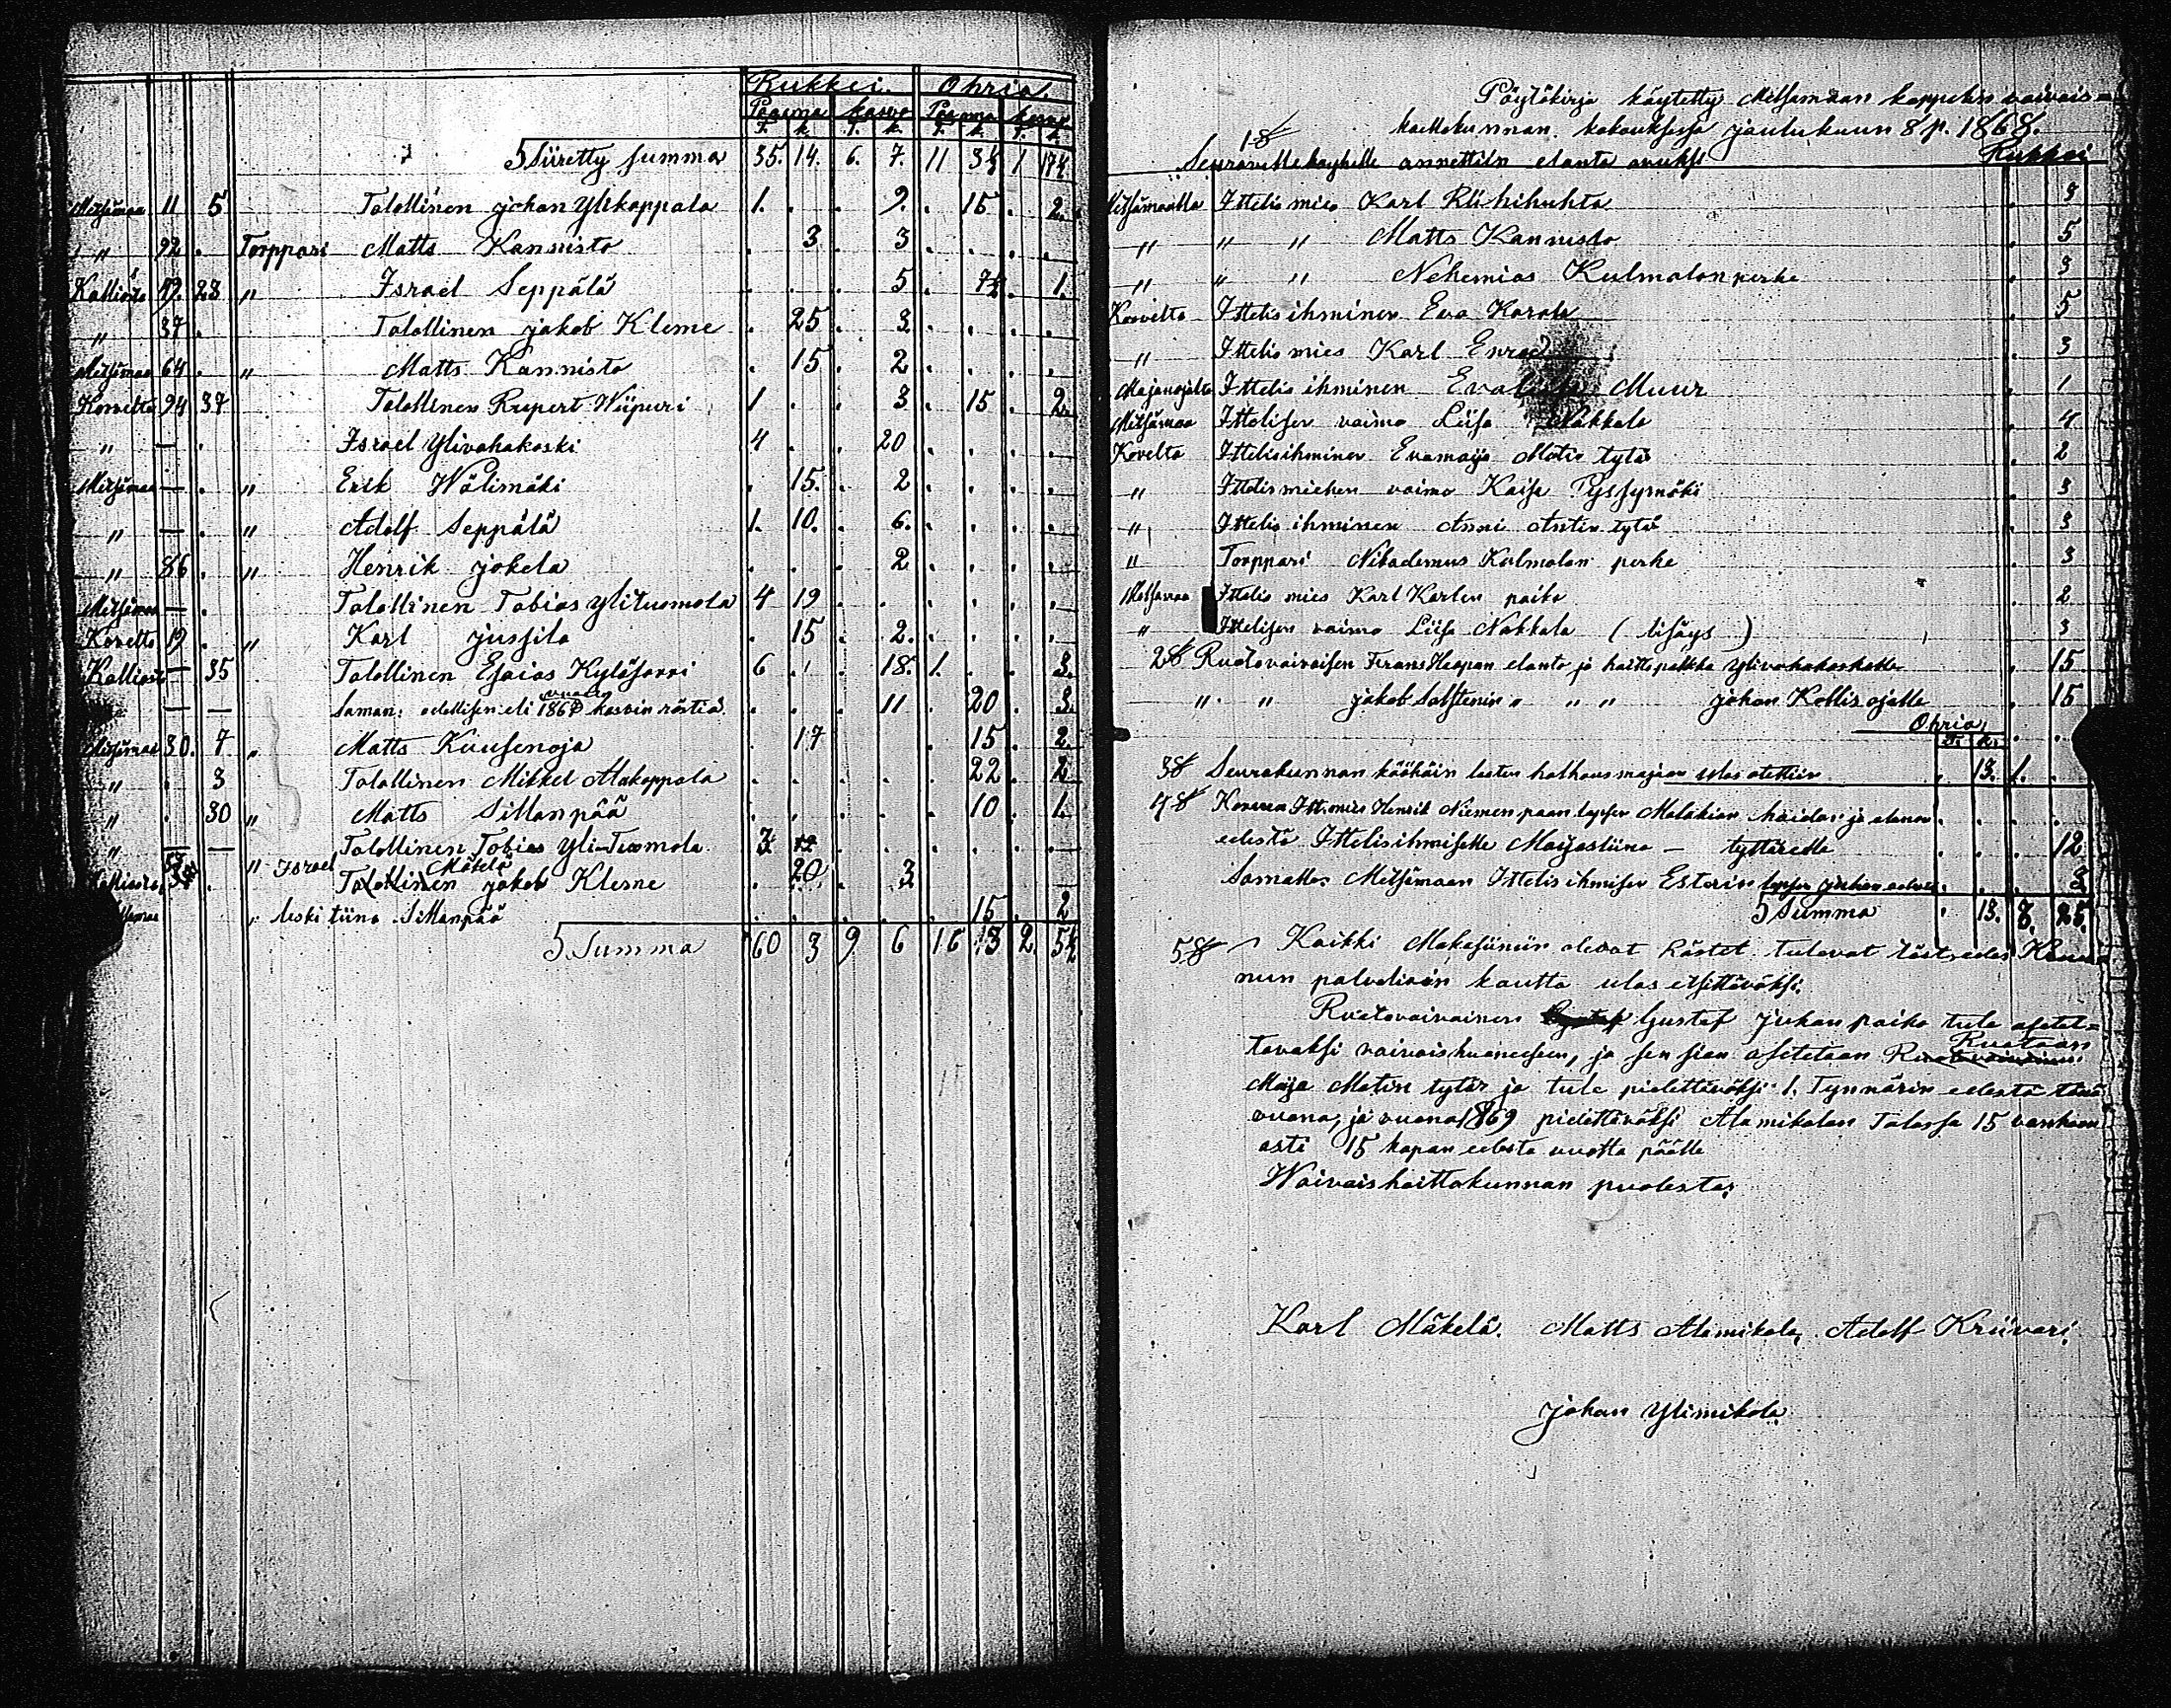 Rukkei. Ohria.
Pääoma kasvo Pääoma kasvo
T. k. T. k. T. k. T. k.
Siiretty summa 35. 14. 6. 7. 11 3½ 1 17½
Metsämaa 11 5 Talollinen johan Ylikoppala 1. . . 9. . 15 . 2.
" 92 . Torppari Matts Kannisto . 3 . 3 . . . .
Kalliosta 49. 28 " Israel Seppälä . . . 5 . 7½ . 1.
" 37 . Talollinen jakob Kleme . 25 . 3 . . . .
Metsämaa 64 . " Matts Kannisto . 15 . 2 . . . .
Korvelta 94 37 Talollinen Rupert Wiipuri 1 . . 3 . 15 . 2
" — . Israel Ylivahakoski 4 . . 20 . . . .
Metsämaa — . " Erik Wälimäki . 15. . 2 . . . .
" — . " Adolf Seppälä 1. 10. . 6. . . . .
" 86 . " Henrik jokela . . . 2 . . . .
Metsämaa — . Talollinen Tobias Ylituomola 4 19 . . . . . .
Korvelta 19 . " Karl jussila . 15 . 2. . . . .
Kalliosta — 35 Talollinen Esaias Kyläjoarri 6 . . 18. 1. . . 3.
— — Saman: edellisen eli 1867 vuoden kasvin rästiä . . . 11 . 20 . 3.
Metsämaa 30. 7 " Matts Kuusenoja . 17 . . . 15 . 2.
" . 3 Talollinen Mikkel Alakoppala . . . . . 22 . 2
" . 30 " Matts Sillanpää . . . . . 10 . 1.
" — — Talollinen Tobias Yli-Tuomola 3 12 . . . . . .
" Israel Mäkelä
Talollinen jakob Kleme . 20 . 3 . . . .
" leski tiina Sillanpää . 15 . 2
Summa 60 3 9 6 16 13 2 5½
Pöytäkirja käytetty Metsämaan kappelin vaivais=
hoittokunnan kokouksessa joulukuun 8 p. 1868.
1§ Seuraavillekoyhille annettiin elanto avuksi Rukkei
Metsämaalta Ittellis mies Karl Riihihuhta . 3
" " " Matts Kannisto . 5
" " " Nehemias Kulmalan perhe . 3
Korvelta Ittellis ihminen Eva Harola . 5
" Ittellis mies Karl . 3
Majanojalta Ittellis ihminen Muur . 1
Metsämaa Ittellisen vaimo Liisa Nakkala . 4
Korvelta Ittellisihminen Evamaija Matin tytär . 2
" Ittellis miehen vaimo Kaisa Pyssymäki . 3
" Ittellis ihminen Anni Antin tytär . 3
" Torppari Nikodemus Kulmalan perhe . 3
Metsämaa Ittellis mies Karl Karlin poika . 2
" Ittellisen vaimo Liisa Nakkala (lisäys) . 3
2§ Ruotovaivaisen Frans Haapan elanto ja hoittopalkka Ylivahakoskelle . 15
" " jakob Salstenin " " " johan Kollisojalle . 15
Ohria
T. k.
3§ Seurakunnan köökäin lasten holhousmajaan ulos otettiin . 13. 1. .
4§ Ittmies Henrik Niemenpään lapsen Malakian hoidon ja elannon
edestä Ittellisihmiselle Maijastiina — tyttärelle . . . 12
Samalle Metsämaan Ittellis ihmisen Esterin lapsen juhan edestä . . . 3
Summa . 13. 3. 25.
5§ Kaikki Makasiiniin olevat Rästet tulevat tästedes Kruu=
nun palvelioin kautta ulos etsittäväksi.
Ruotovaivainen Gustaf juhan poika tule asetet=
tavaksi vaivaishuoneeseen, ja sen sian asetetaan Ruotoon
Maija Matin tytär ja tule pielettäväksi 1. Tynnärin edestä tänä
vuona, ja vuona 1869 pielettäväksi Alamikolan Talossa 15 vanhaan
asti 15 kapan edestä vuotta päälle
Waivaishoittokunnan puolesta:
Karl Mäkelä. Matts Alamikola, Adolf Kriivari.
johan Ylimikola